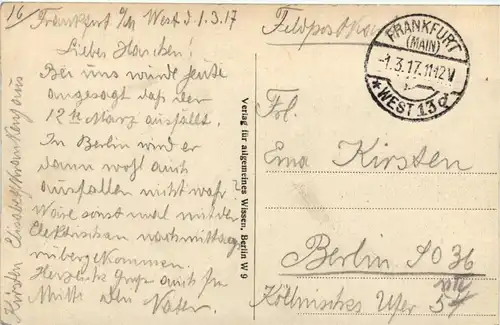 16/
Frankfurt a/M West d. 1.3.17
Liebes Hanchen!
Bei uns wurde heute
angesagt daß der
12te März ausfällt.
In Berlin wird er
dann wohl auch
ausfallen nicht wahr?
Wäre sonst mal mit der
Elektrischen nachmittag
rübergekommen.
Herzliche Grüße auch für
Mutti dein Vater.
Kirsten Elisabethkrankenhaus
Verlag für allgemeines Wissen, Berlin W 9
Feldpostkarte
FRANKFURT
(MAIN)
-1.3.17.11-12V
* WEST 13 d *
Frl.
Erna Kirsten
Berlin SO 36
Köllnisches Ufer 54